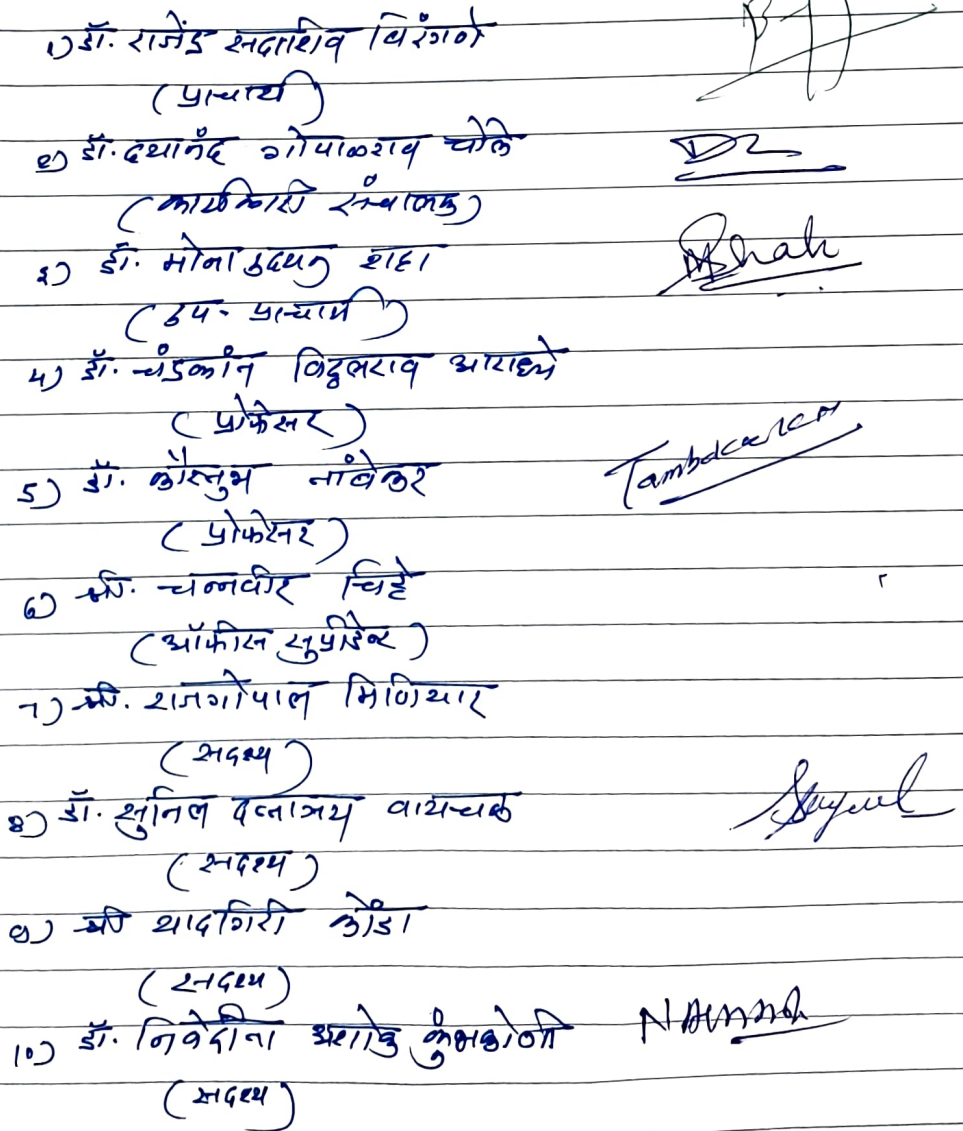 १) डॉ. राजेंद्र सदाशिव विरंगणे
(प्राचार्य)
२) डॉ. दयानंद गोपाळराव चोले
(कार्यकारी संचालक)
३) डॉ. मोना उदयन शहा
(उप- प्राचार्य)
4) डॉ. चंद्रकांत विठ्ठलराव आराध्ये
(प्रोफेसर)
5) डॉ. कौस्तुभ तांबेकर
(प्रोफेसर)
Tambekar
6) श्री. चन्नवीर चिट्टे
(ऑफीस सुप्रीडेंट)
7) श्री. राजगोपाल मिणियार
(सदस्य)
8) डॉ. सुनिल दत्तात्रय वायचळ
(सदस्य)
9) श्री यादगिरी कोंडा
(सदस्य)
10) डॉ. निवेदीता अशोक कुंभकोणी
(सदस्य)